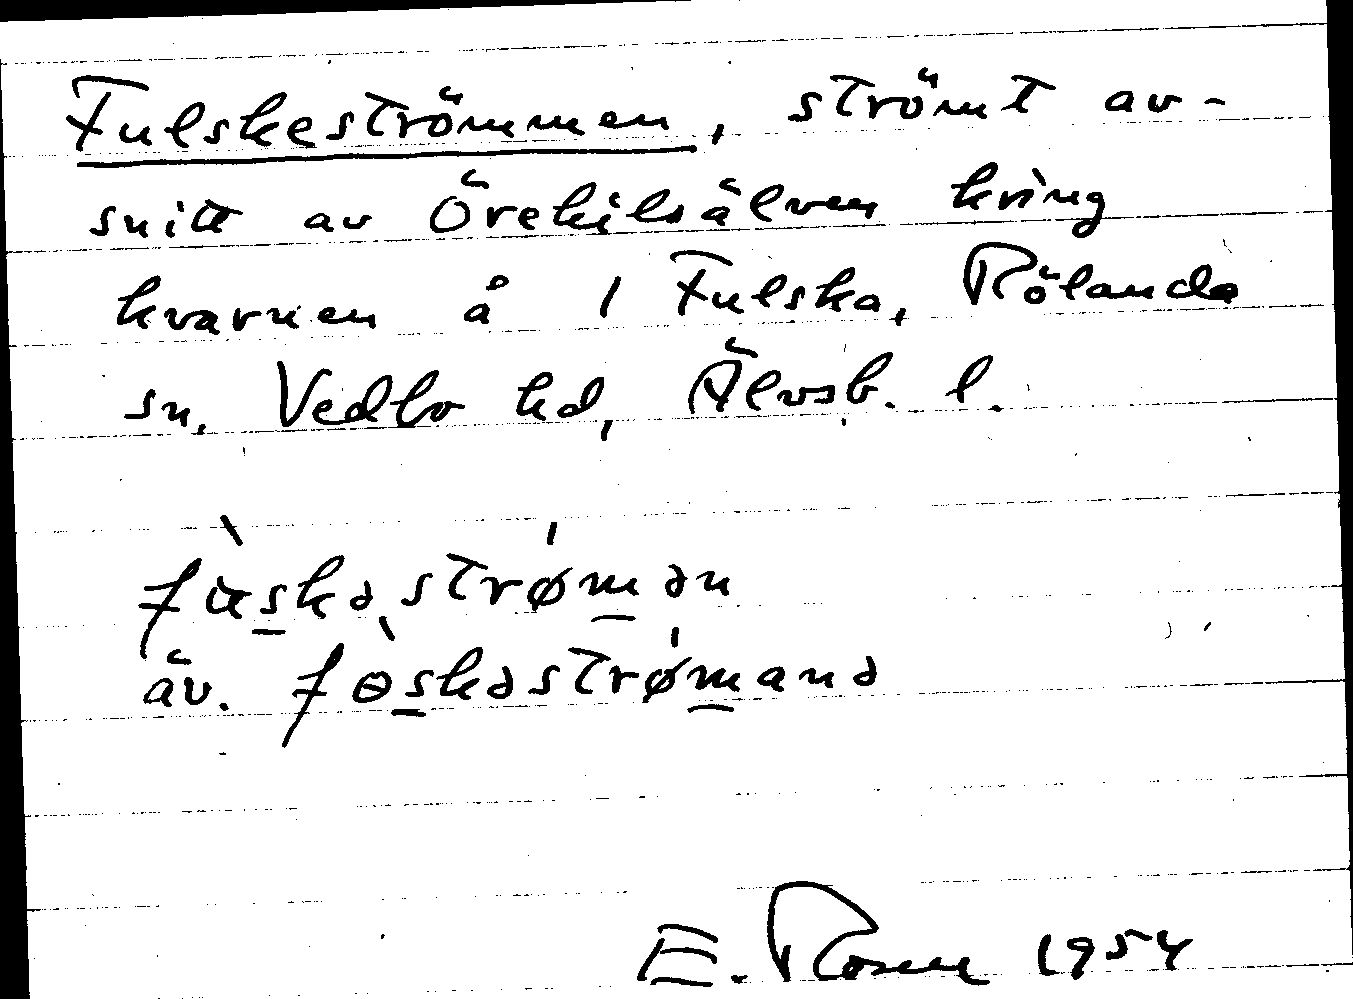 Fulskeströmmen, strömt av-
snitt av Örekilsälven kring
kvarnen å 1 Fulska, Rölanda
sn, Vedbo hd, Älvsb. l.
fùskəstrǿmən
äv. fɵ̀skəstrǿmanə
E. Rosen 1954